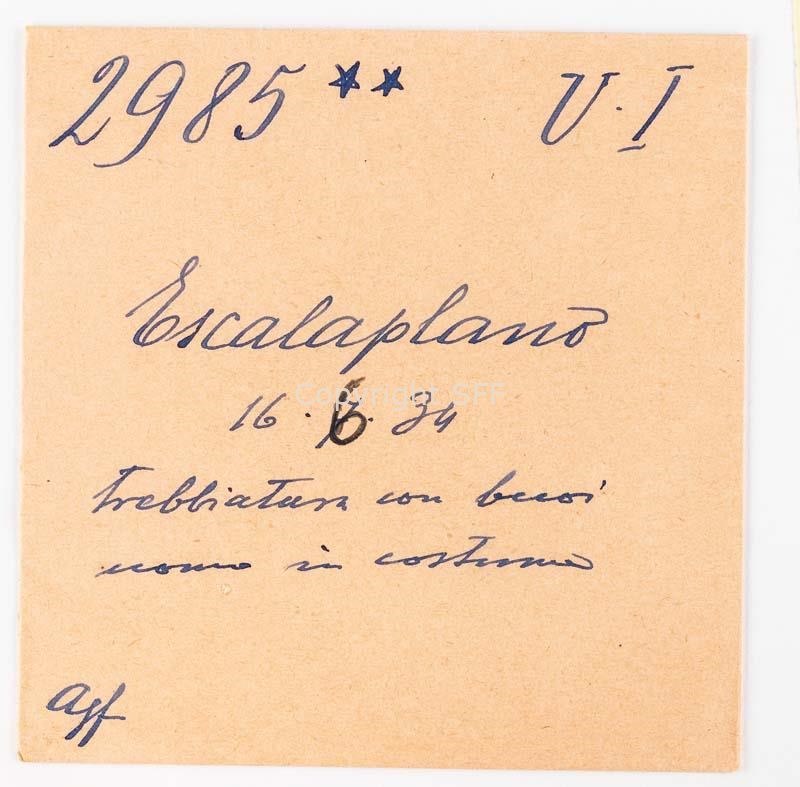 2985 ** V. I
Escalaplano
16. 6. 34
Copyright SFF
trebbiatura con buoi
uomo in costume
Agf